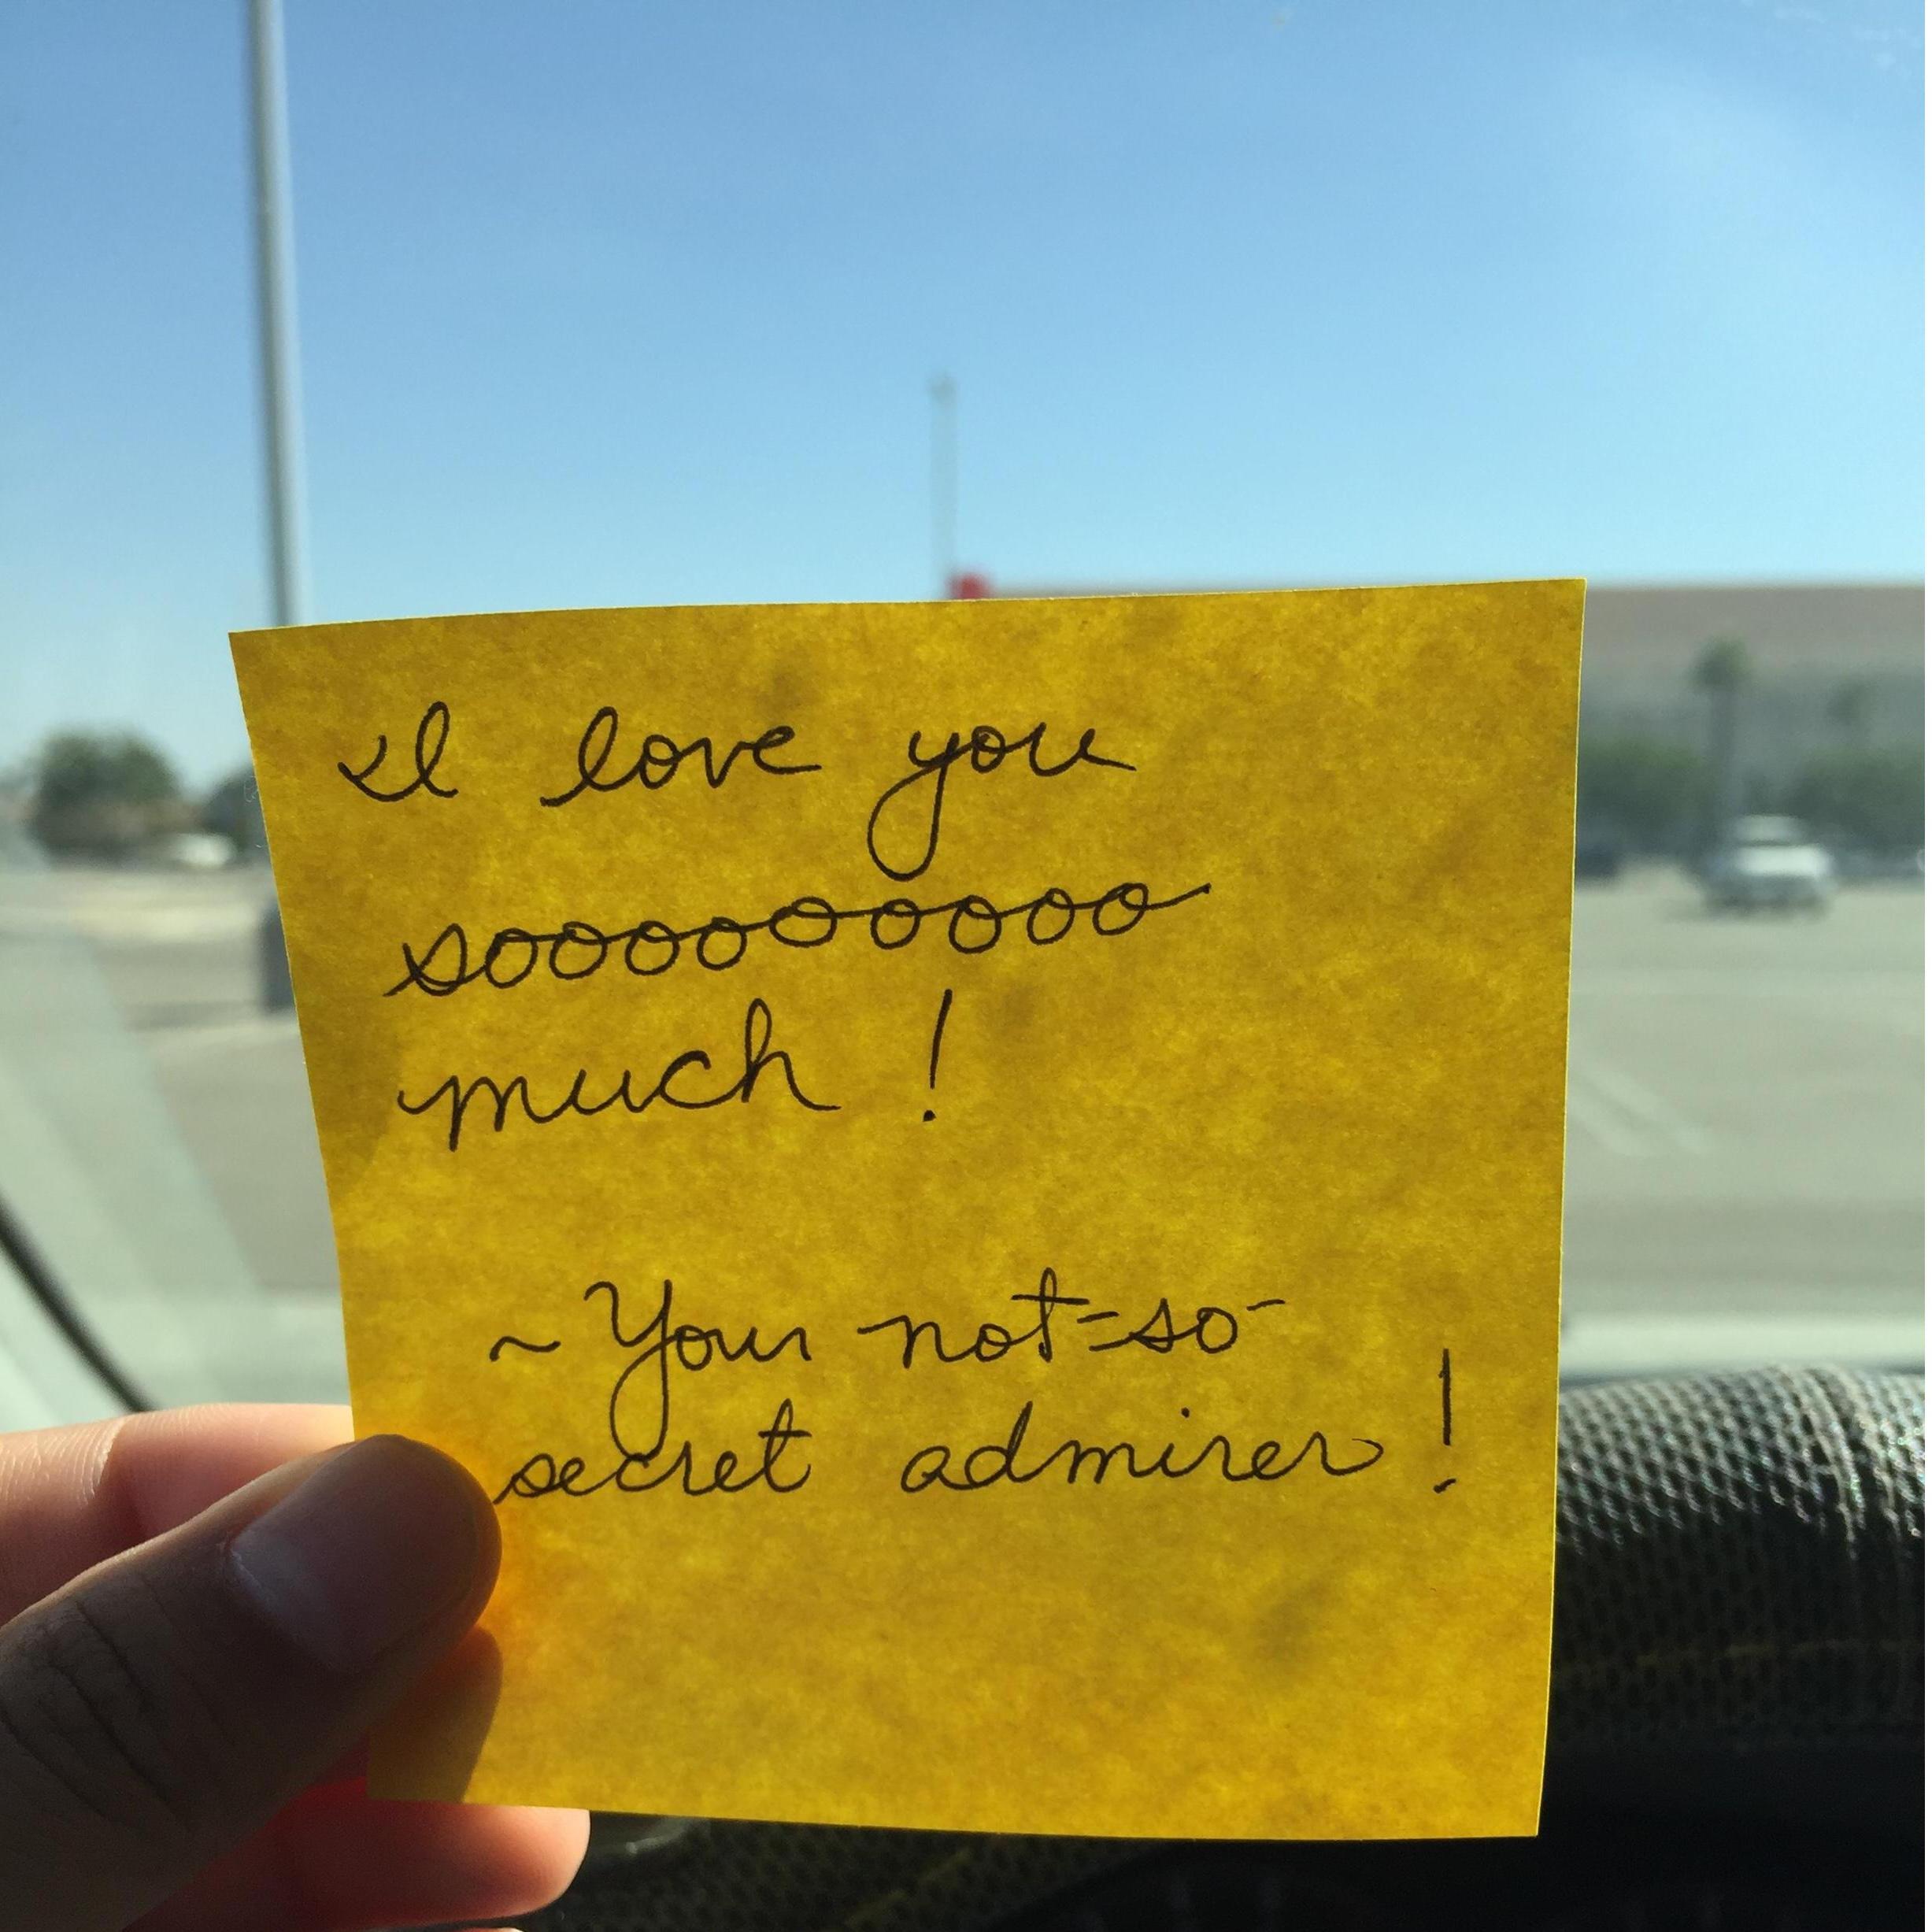 I love you
sooooooooo
much!
~Your not-so-
secret admirer!